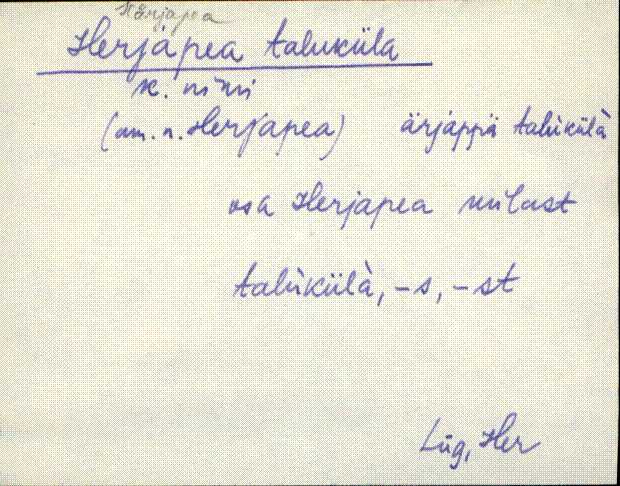 Härjapea
Herjapea taluküla
k. nimi
(am. n. Herjapea) ärjappä talùkülà
osa Herjapea külast
talùkülà, -s, -st
Lüg, Her